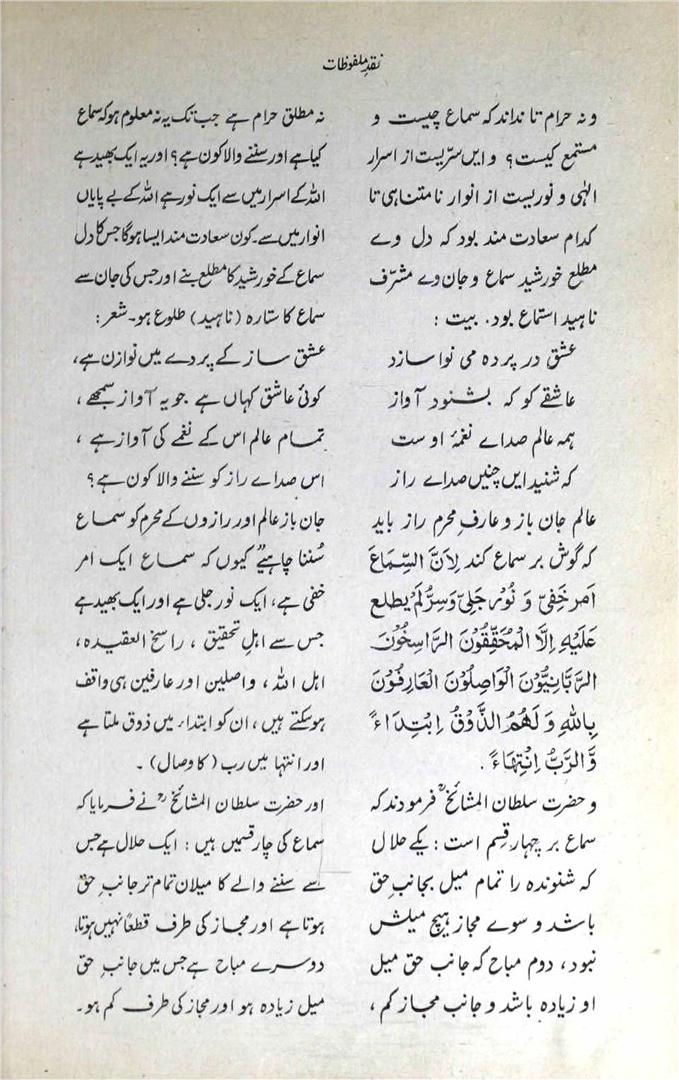 نقدِ ملفوظات
و نہ حرام تا نداند کہ سماع چیست و
مستمع کیست؟ و ایں سرّیست از اسرار
الٰہی و نوریست از انوار نامتناہی تا
کدام سعادت مند بود کہ دل وے
مطلع خورشید سماع و جان وے مشرّف
ناہید استماع بود۔ بیت :
عشق در پردہ می نوا سازد
عاشقے کو کہ بشنود آواز
ہمہ عالم صداے نغمۂ اوست
کہ شنید ایں چنیں صداے راز
عالم جان باز و عارفِ محرم راز باید
کہ گوش بر سماع کند لِاَنَّ السِّمَاعَ
اَمر خَفِیّ وَ نُوْر جَلِیّ وَسِرٌّ لَمْ یطلع
عَلَیْهِ اِلَّا الْمُحَقِّقُوْنَ الرَّاسِخُوْنَ
الرَّبَّانِیُّوْنَ الْوَاصِلُوْنَ الْعَارِفُوْنَ
بِاللّٰهِ وَ لَهُمُ الذَّوْقُ اِبْتِدَاءً
وَّالرَّبُّ اِنْتِهَاءً ۔
و حضرت سلطان المشائخؒ فرمودند کہ
سماع بر چہار قسم است : یکے حلال
کہ شنوندہ را تمام میل بجانبِ حق
باشد و سوے مجاز ہیچ میلش
نبود، دوم مباح کہ جانب حق میل
او زیادہ باشد و جانب مجاز کم ،
نہ مطلق حرام ہے جب تک یہ نہ معلوم ہو کہ سماع
کیا ہے اور سننے والا کون ہے؟ اور یہ ایک بھید ہے
اللہ کے اسرار میں سے ایک نور ہے اللہ کے بے پایاں
انوار میں سے۔ کون سعادت مند ایسا ہوگا جس کا دل
سماع کے خورشید کا مطلع بنے اور جس کی جان سے
سماع کا ستارہ (ناہید) طلوع ہو۔ شعر :
عشق ساز کے پردے میں نوازن ہے،
کوئی عاشق کہاں ہے جو یہ آواز سمجھے ،
تمام عالم اس کے نغمے کی آواز ہے ،
اس صداے راز کو سننے والا کون ہے؟
جان باز عالم اور رازوں کے محرم کو سماع
سُننا چاہیے" کیوں کہ سماع ایک امر
خفی ہے، ایک نور جلی ہے اور ایک بھید ہے
جس سے اہلِ تحقیق ، راسخ العقیدہ ،
اہل اللہ ، واصلین اور عارفین ہی واقف
ہوسکتے ہیں ، ان کو ابتداء میں ذوق ملتا ہے
اور انتہا میں رب (کا وصال) ۔
اور حضرت سلطان المشائخؒ نے فرمایا کہ
سماع کی چار قسمیں ہیں : ایک حلال ہے جس
سے سننے والے کا میلان تمام تر جانب حق
ہوتا ہے اور مجاز کی طرف قطعًا نہیں ہوتا،
دوسرے مباح ہے جس میں جانبِ حق
میل زیادہ ہو اور مجاز کی طرف کم ہو۔